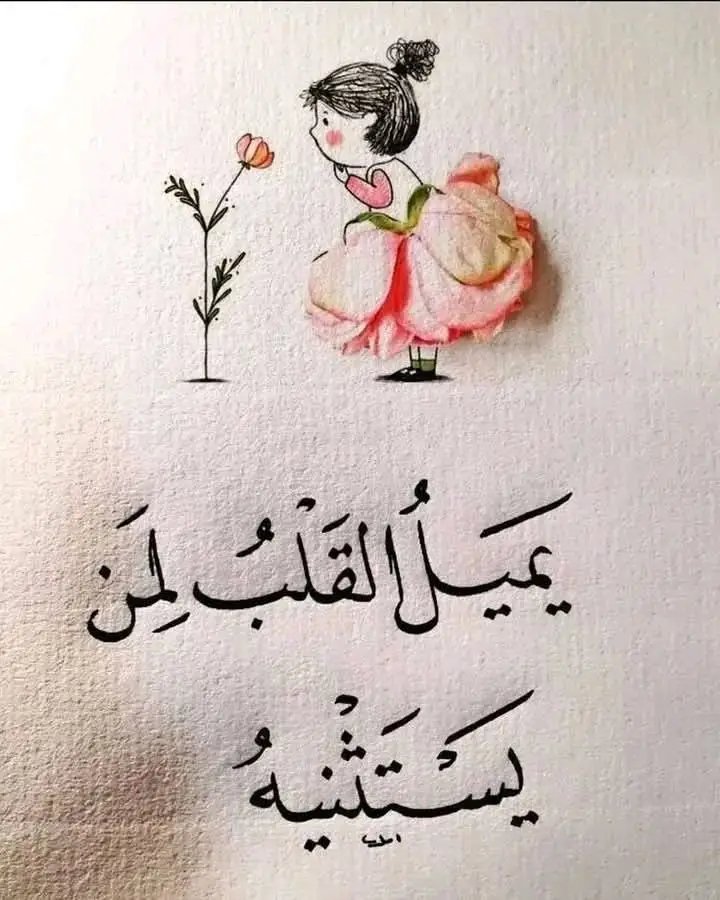 يميَلُ القَلْبُ لِمَن
يَسْتَثْنيهُ